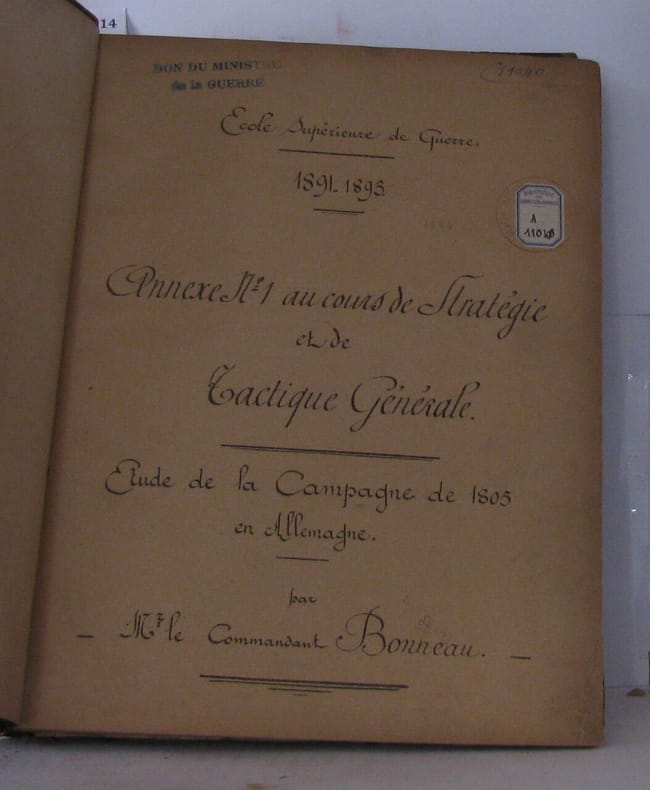 14
DON DU MINISTRE
de la GUERRE
11040
Ecole Supérieure de Guerre.
1891-1893
A
11040
Annexe N° 1 au cours de Stratégie
et de
Tactique Générale.
Etude de la Campagne de 1805
en Allemagne.
par
— Mr le Commandant Bonneau. —